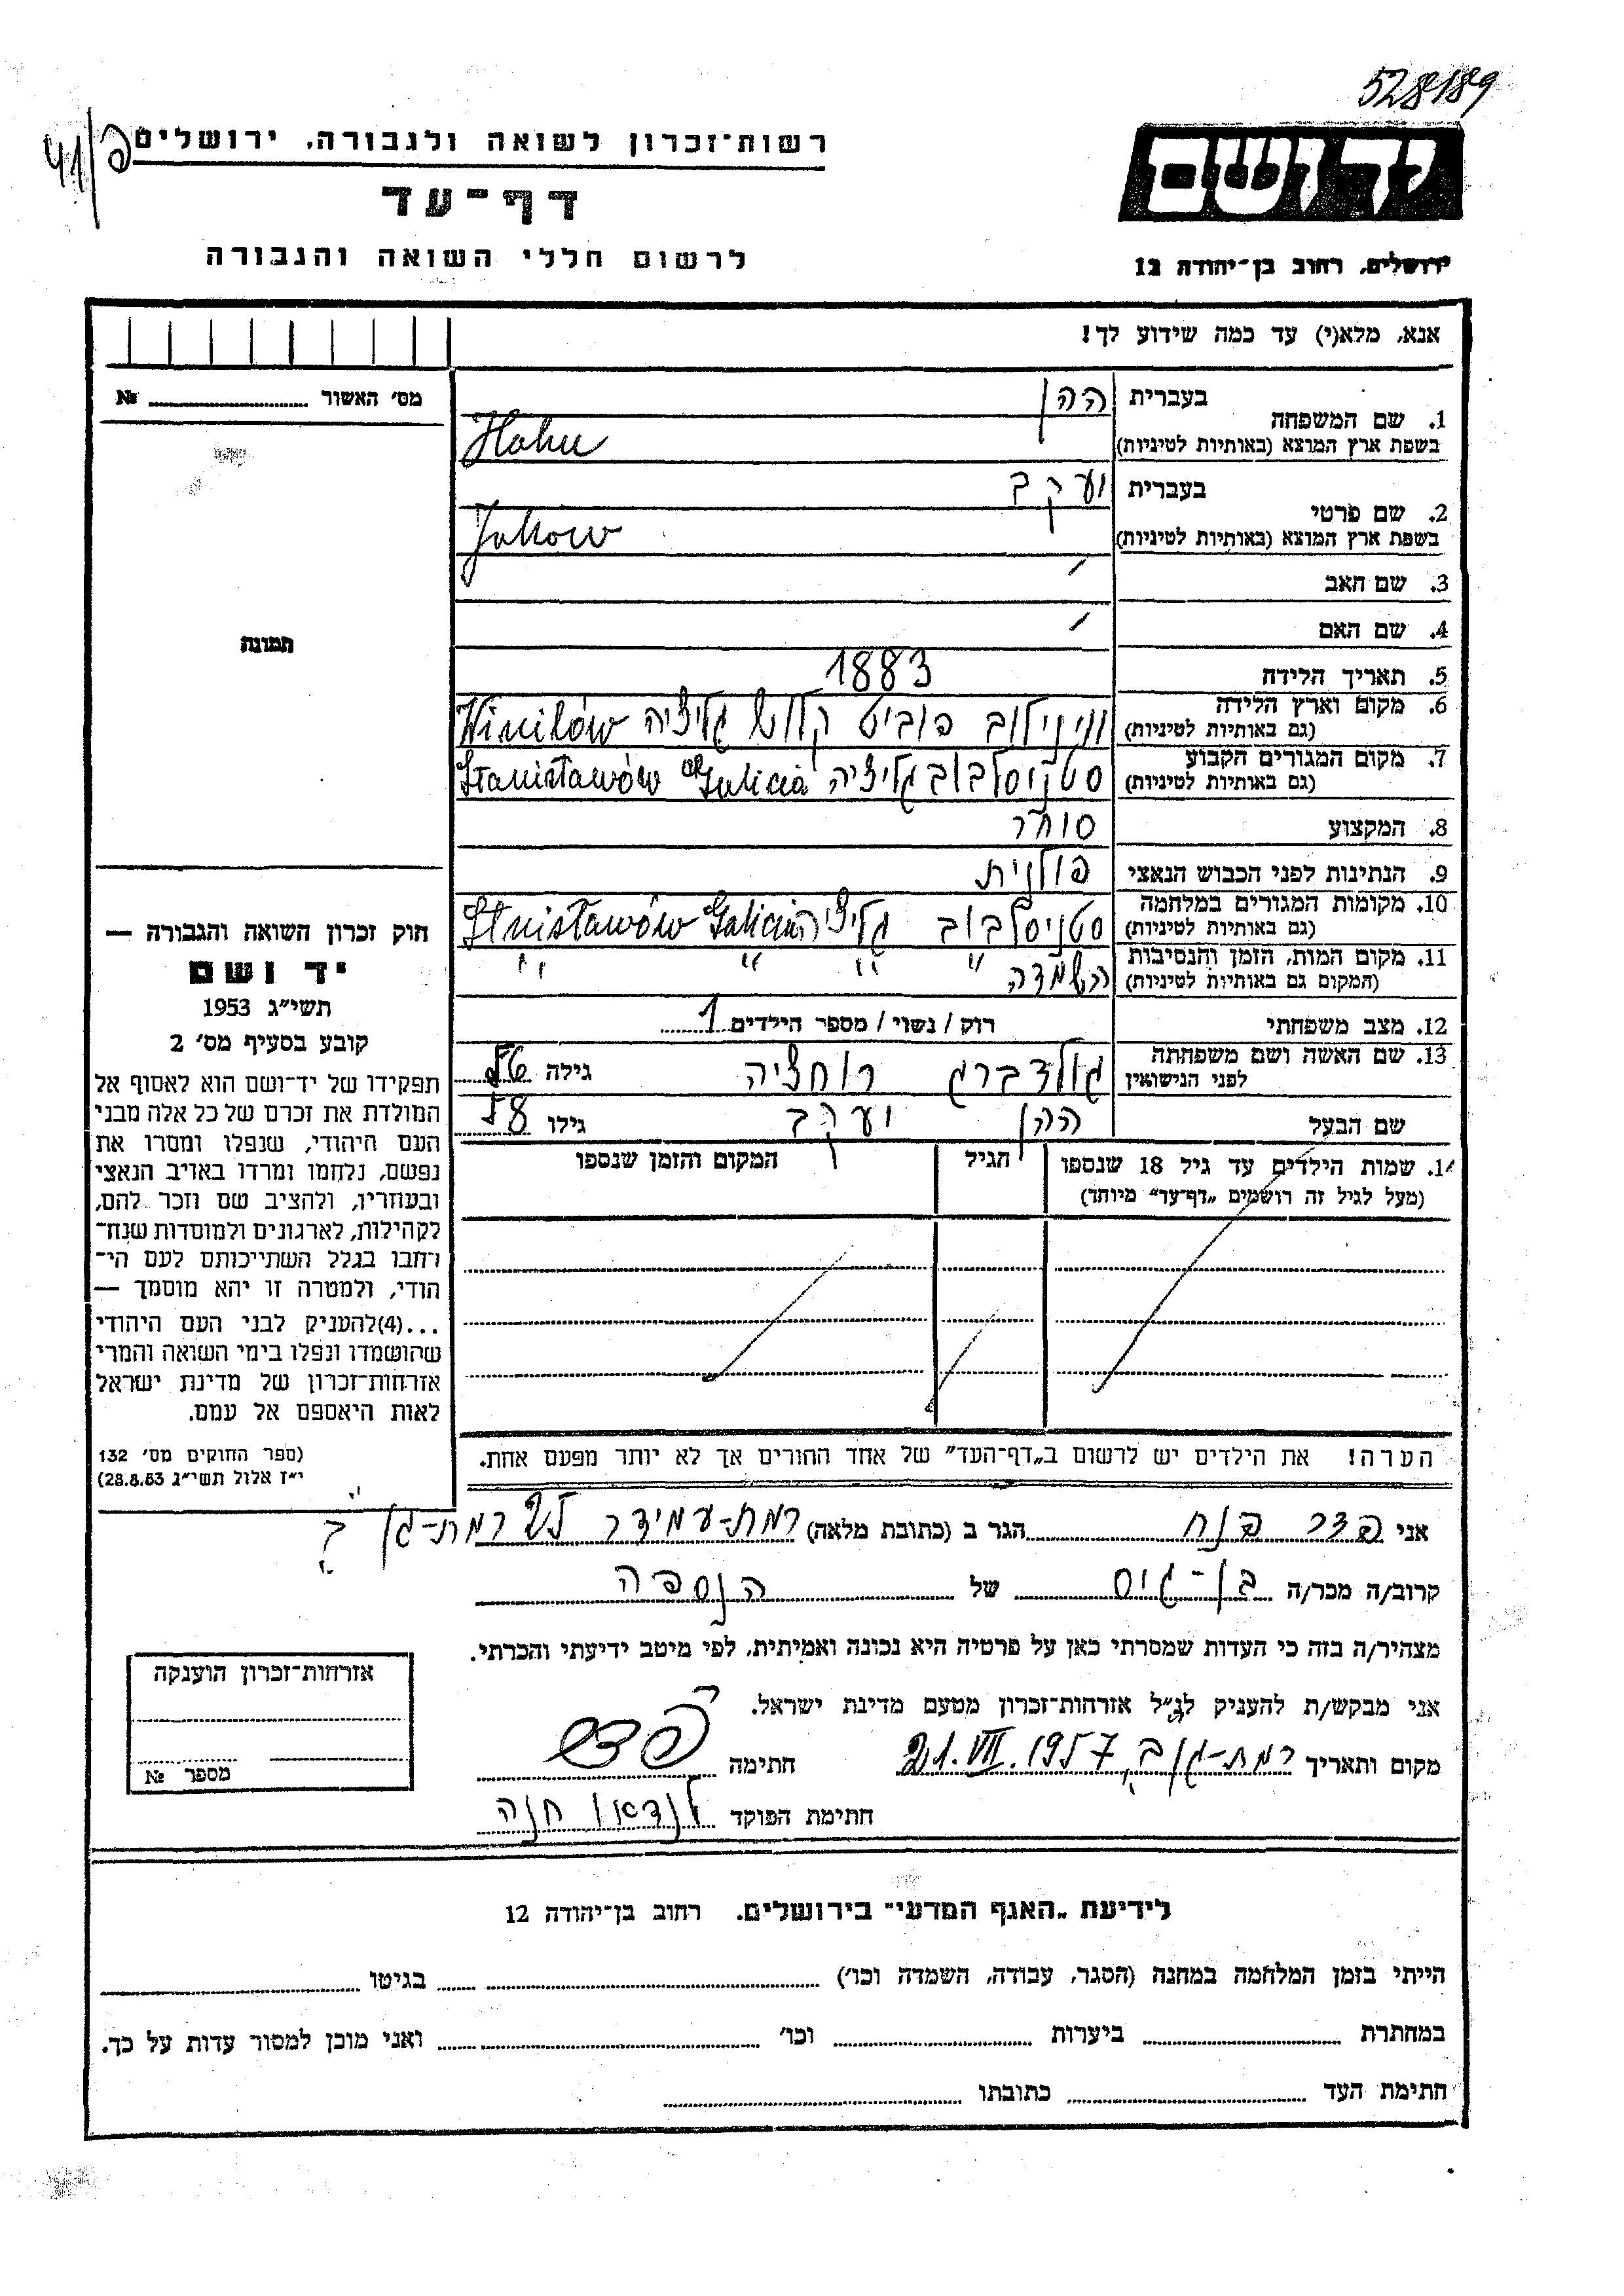 528189
41/פ
רשות־זכרון לשואה ולגבורה, ירושלים
דף־עד
לרשום חללי השואה והגבורה
יד ושם
ירושלים, רחוב בן־יהודה 12
אנא, מלא(י) עד כמה שידוע לך!
מס׳ האשור № 
1. שם המשפחה בעברית ההן
בשפת ארץ המוצא (באותיות לטיניות) Hahn
2. שם פרטי בעברית יעקב
בשפת ארץ המוצא (באותיות לטיניות) Jakow
3. שם האב
4. שם האם
5. תאריך הלידה 1883
6. מקום וארץ הלידה
(גם באותיות לטיניות) גליציה Winików
7. מקום המגורים הקבוע
(גם באותיות לטיניות) סטניסלבוב גליציה Galicia Stanisławów
8. המקצוע סוחר
9. הנתינות לפני הכבוש הנאצי פולנית
10. מקומות המגורים במלחמה
(גם באותיות לטיניות) סטניסלבוב גליציה Galicia Stnisławów
11. מקום המות, הזמן והנסיבות
(המקום גם באותיות לטיניות) השמדה " " " "
12. מצב משפחתי רוק / נשוי / מספר הילדים 1
13. שם האשה ושם משפחתה
לפני הנישואין גולדברג רוחציה גילה
שם הבעל ההן יעקב גילו 58
14. שמות הילדים עד גיל 18 שנספו
(מעל לגיל זה רושמים „דף־עד” מיוחד)
הגיל
המקום והזמן שנספו
הערה! את הילדים יש לרשום ב„דף־העד” של אחד ההורים אך לא יותר מפעם אחת.
תמונה
חוק זכרון השואה והגבורה —
יד ושם
תשי״ג 1953
קובע בסעיף מס׳ 2
תפקידו של יד־ושם הוא לאסוף אל
המולדת את זכרם של כל אלה מבני
העם היהודי, שנפלו ומסרו את
נפשם, נלחמו ומרדו באויב הנאצי
ובעוזריו, ולהציב שם וזכר להם,
לקהילות, לארגונים ולמוסדות שנח־
רחבו בגלל השתייכותם לעם הי־
הודי, ולמטרה זו יהא מוסמך —
...(4)להעניק לבני העם היהודי
שהושמדו ונפלו בימי השואה והמרי
אזרחות־זכרון של מדינת ישראל
לאות היאספם אל עמם.
(ספר החוקים מס׳ 132
י״ז אלול תשי״ג 28.8.53)
אני פדר פנח הגר ב (כתובת מלאה) רמת-עמידר רמת-גן
קרוב/ה מכר/ה בן-גיס של הנספה
מצהיר/ה בזה כי העדות שמסרתי כאן על פרטיה היא נכונה ואמיתית, לפי מיטב ידיעתי והכרתי.
אני מבקש/ת להעניק לנ״ל אזרחות־זכרון מטעם מדינת ישראל.
מקום ותאריך רמת-גן 21.VII.1957 חתימה
חתימת הפוקד לנדאו חנה
אזרחות־זכרון הוענקה
מספר №
לידיעת „האגף המדעי” בירושלים. רחוב בן־יהודה 12
הייתי בזמן המלחמה במחנה (הסגר, עבודה, השמדה וכו׳) בגיטו
במחתרת ביערות וכו׳ ואני מוכן למסור עדות על כך.
חתימת העד כתובתו